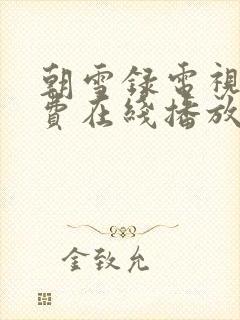 朝雪録電視
費在綫播放
金致允